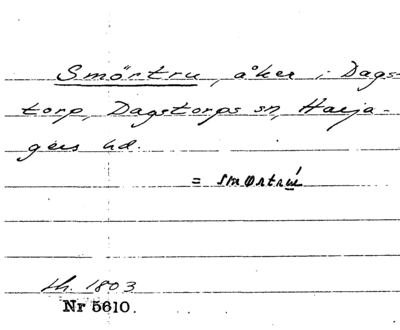 Smörtru, åker i Dags-
torp, Dagstorps sn, Harja-
gers hd.
= smørtrú
lh. 1803
Nr 5610.